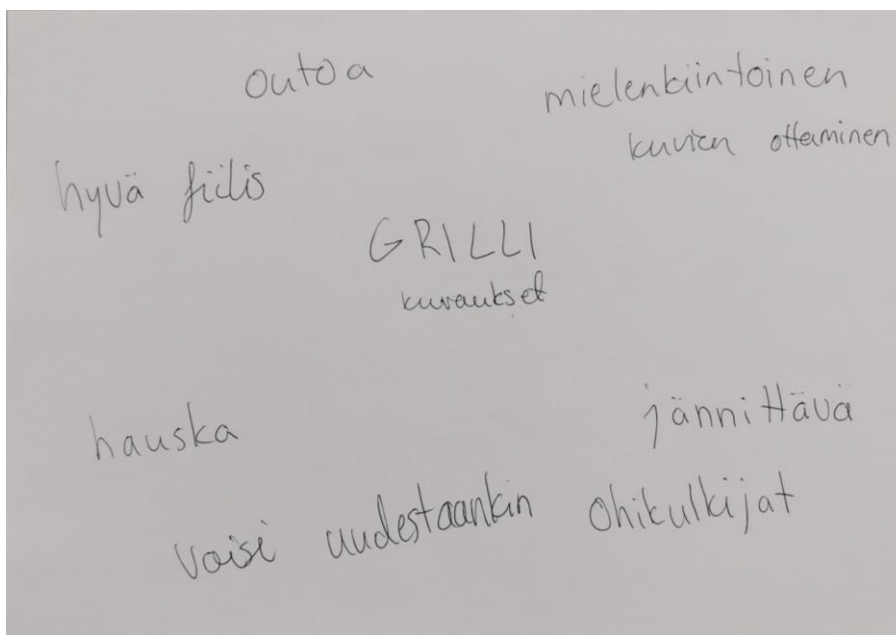 outoa
mielenkiintoinen
kuvien ottaminen
hyvä fiilis
GRILLI
kuvaukset
hauska
jännittävä
voisi uudestaankin
ohikulkijat